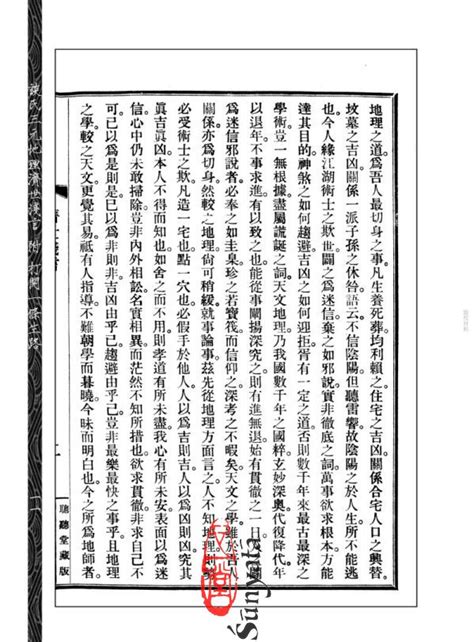 地理之道。為吾人最切身之事。凡生養死葬。均利賴之。住宅之吉凶。關係合宅人口之興替。
坟墓之吉凶。關係一派子孫之休咎。語云。不信陰陽。但聽雷響。故陰陽之於人生。所不能逃
也。今人緣江湖術士之欺世。闢之為迷信。棄之如邪說。實非徹底之詞。萬事欲求根本。方能
達其目的。神煞之如何趨避。吉凶之如何迎拒。胥有一定之道。否則數千年來最古最深之
學術。豈一無根據。盡屬謊誕之詞。天文地理。乃我國數千年之國粹。玄妙深奧。代復降代。年
以退年。不事求進。有以致之也。能從事闡揚。深究之。則有進無退。始有貫徹之一日。
為迷信邪說者。必奉之如圭臬。珍之若寶筏。而信仰之。深考之不暇矣。天文之學。雖於吾人
關係亦為切身。然較之地理。尚可稍緩。就事論事。茲先從地理方面言之。人不知地理。則
必受術士之欺。凡造一宅也。點一穴也。必假手於他人。人以為吉則吉。人以為凶則凶。究其
眞吉眞凶。本人不得而知也。如舍之而不用。則孝道有所未盡。我心有所未安。表面以為迷
信。心中仍未敢掃除。豈非內外相訟。名實相異。而茫然不知所措也。欲求貫徹。非求自己不
可。已以為是則是。已以為非則非。吉凶由乎已。趨避由乎已。豈非最樂最快之事乎。且地理
之學。較之天文。更覺其易。祇有人指導。不難朝學而暮曉。今昧而明白也。今之所為地師者。
聽聽堂藏版
Śūnyatā